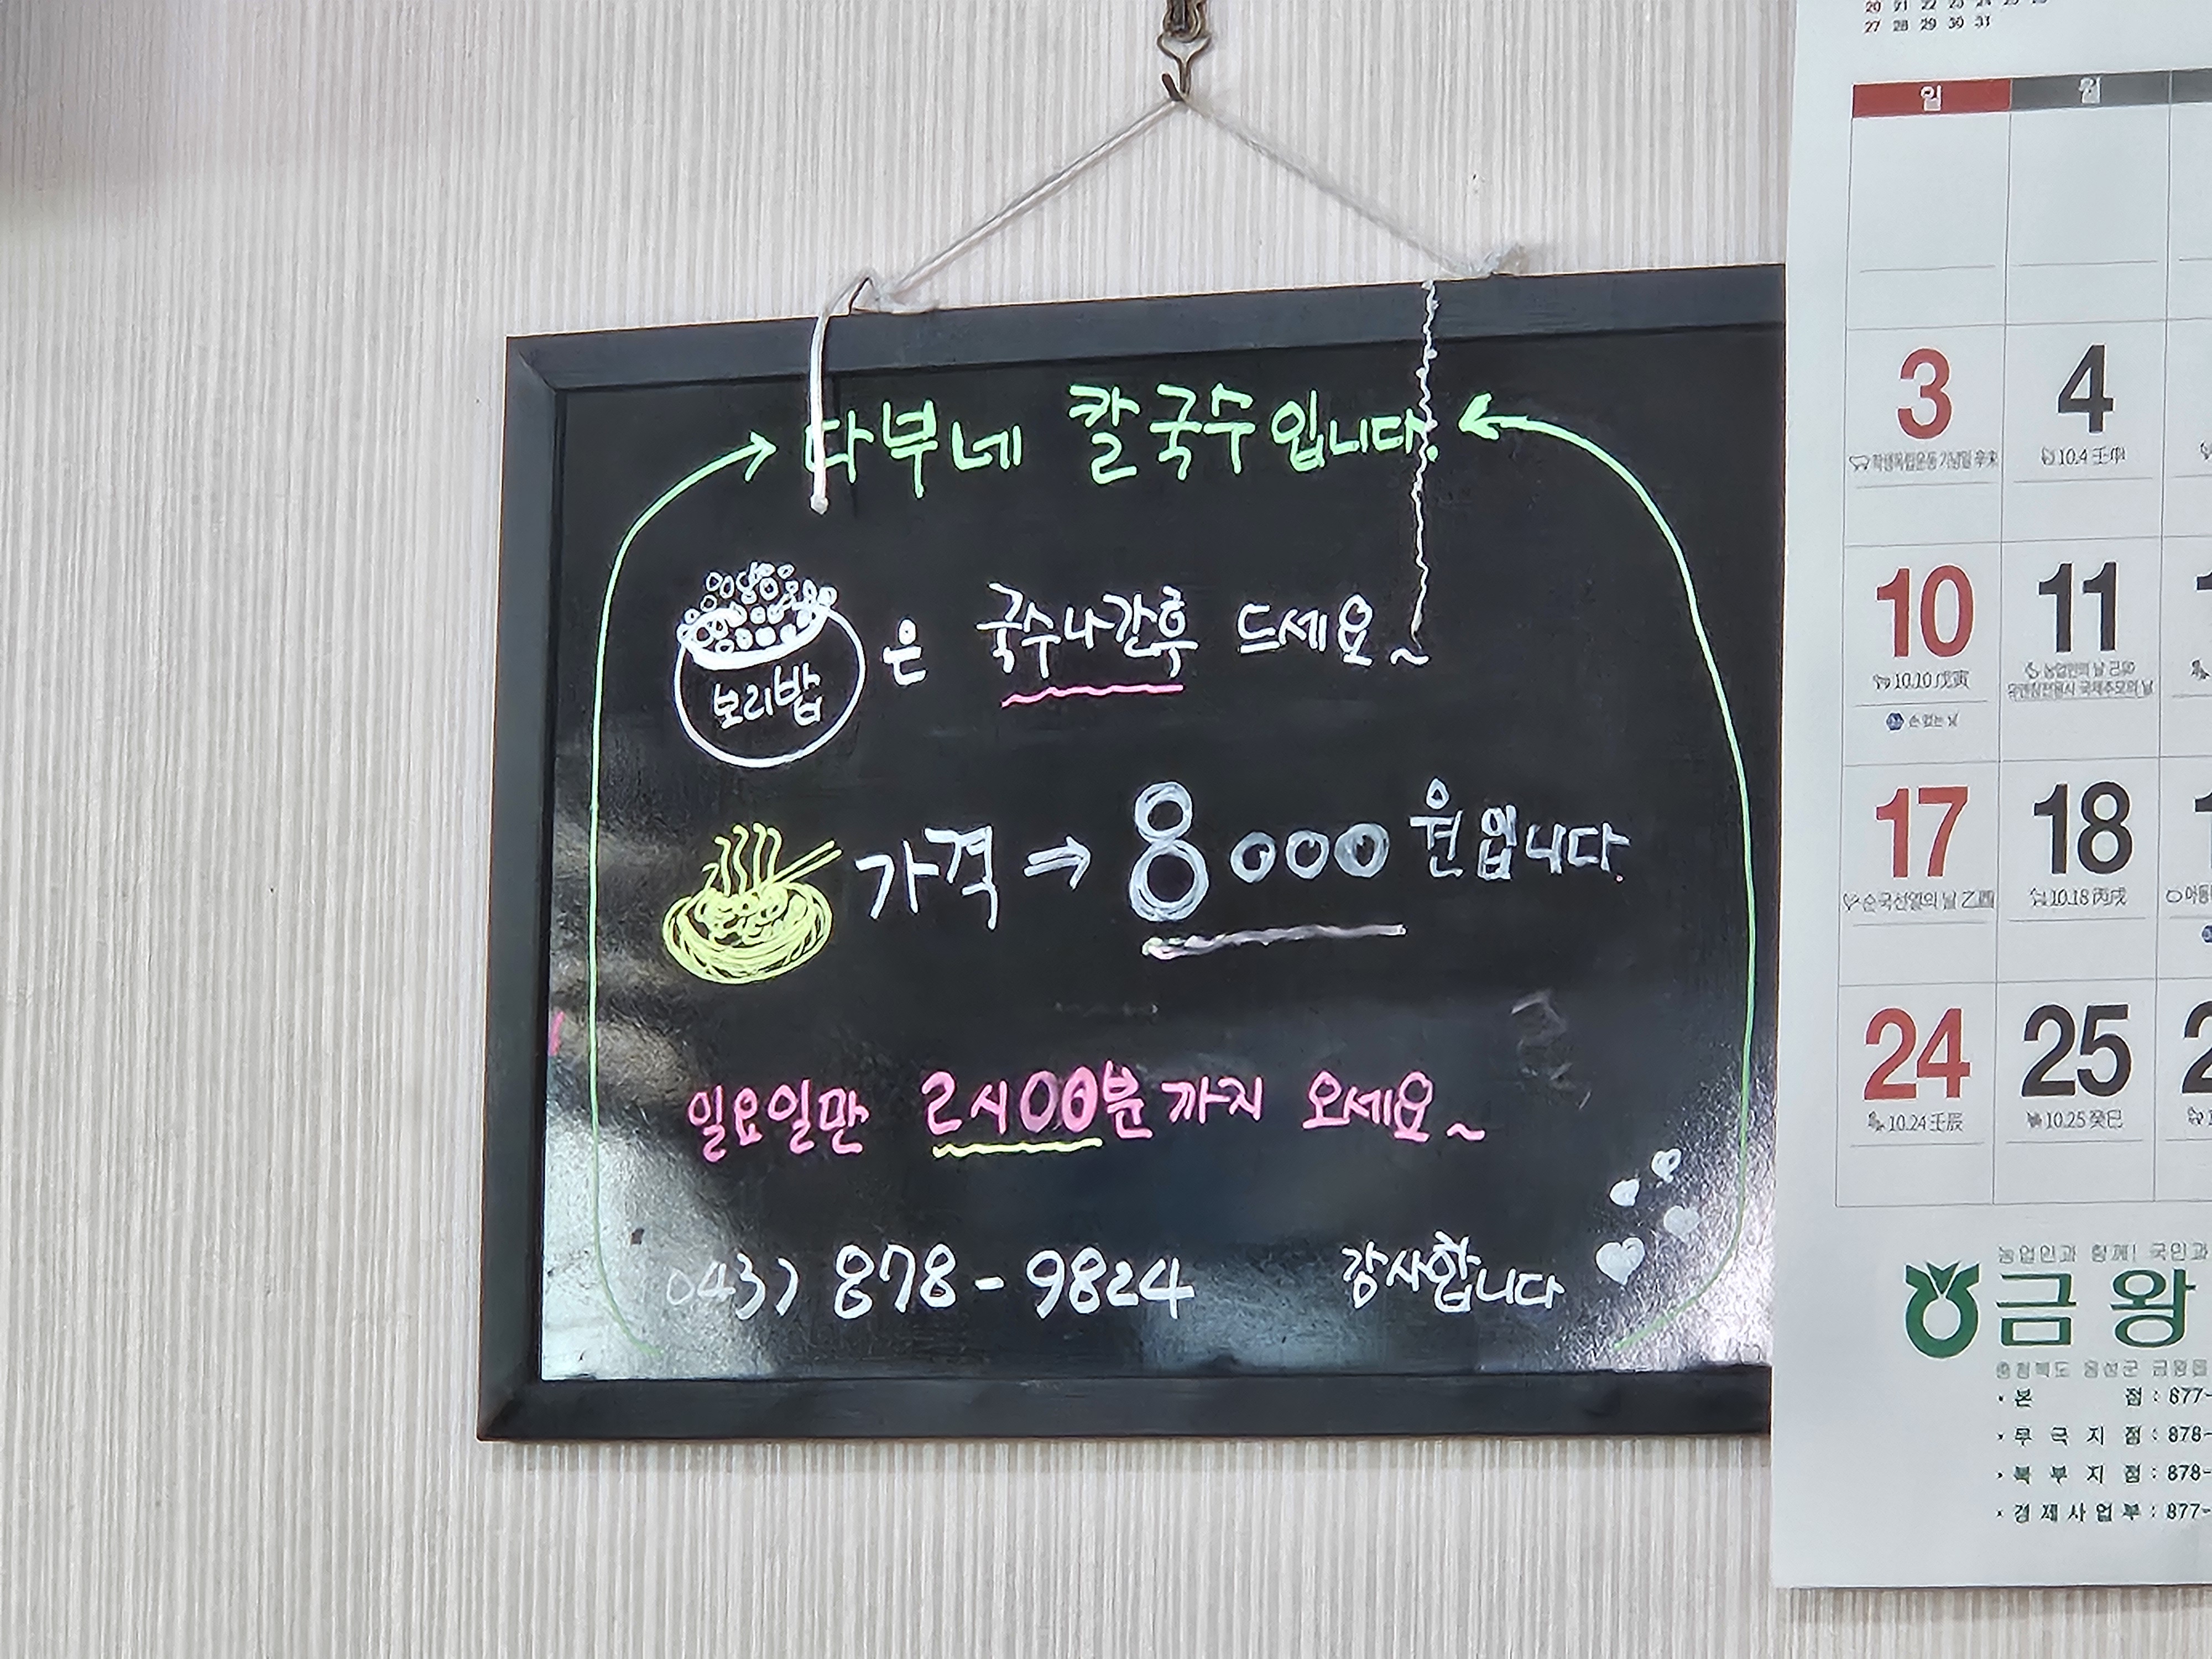 다부네 칼국수입니다.
보리밥은 국수나간후 드세요~
가격 → 8000원입니다.
일요일만 2시00분까지 오세요~
043) 878-9824 감사합니다
20 21 22 23 24 25 26
27 28 29 30 31
일 월
3 4
학생독립운동 기념일 辛未 10.4 壬申
10 11
10.10 戊寅 농업인의 날 己卯
유엔참전용사 국제추모의 날
손 없는 날
17 18
순국선열의 날 乙酉 10.18 丙戌
24 25
10.24 壬辰 10.25 癸巳
농업인과 함께! 국민과
금왕
충청북도 음성군 금왕읍
본 점 : 877-
무극지점 : 878-
북부지점 : 878-
경제사업부 : 877-